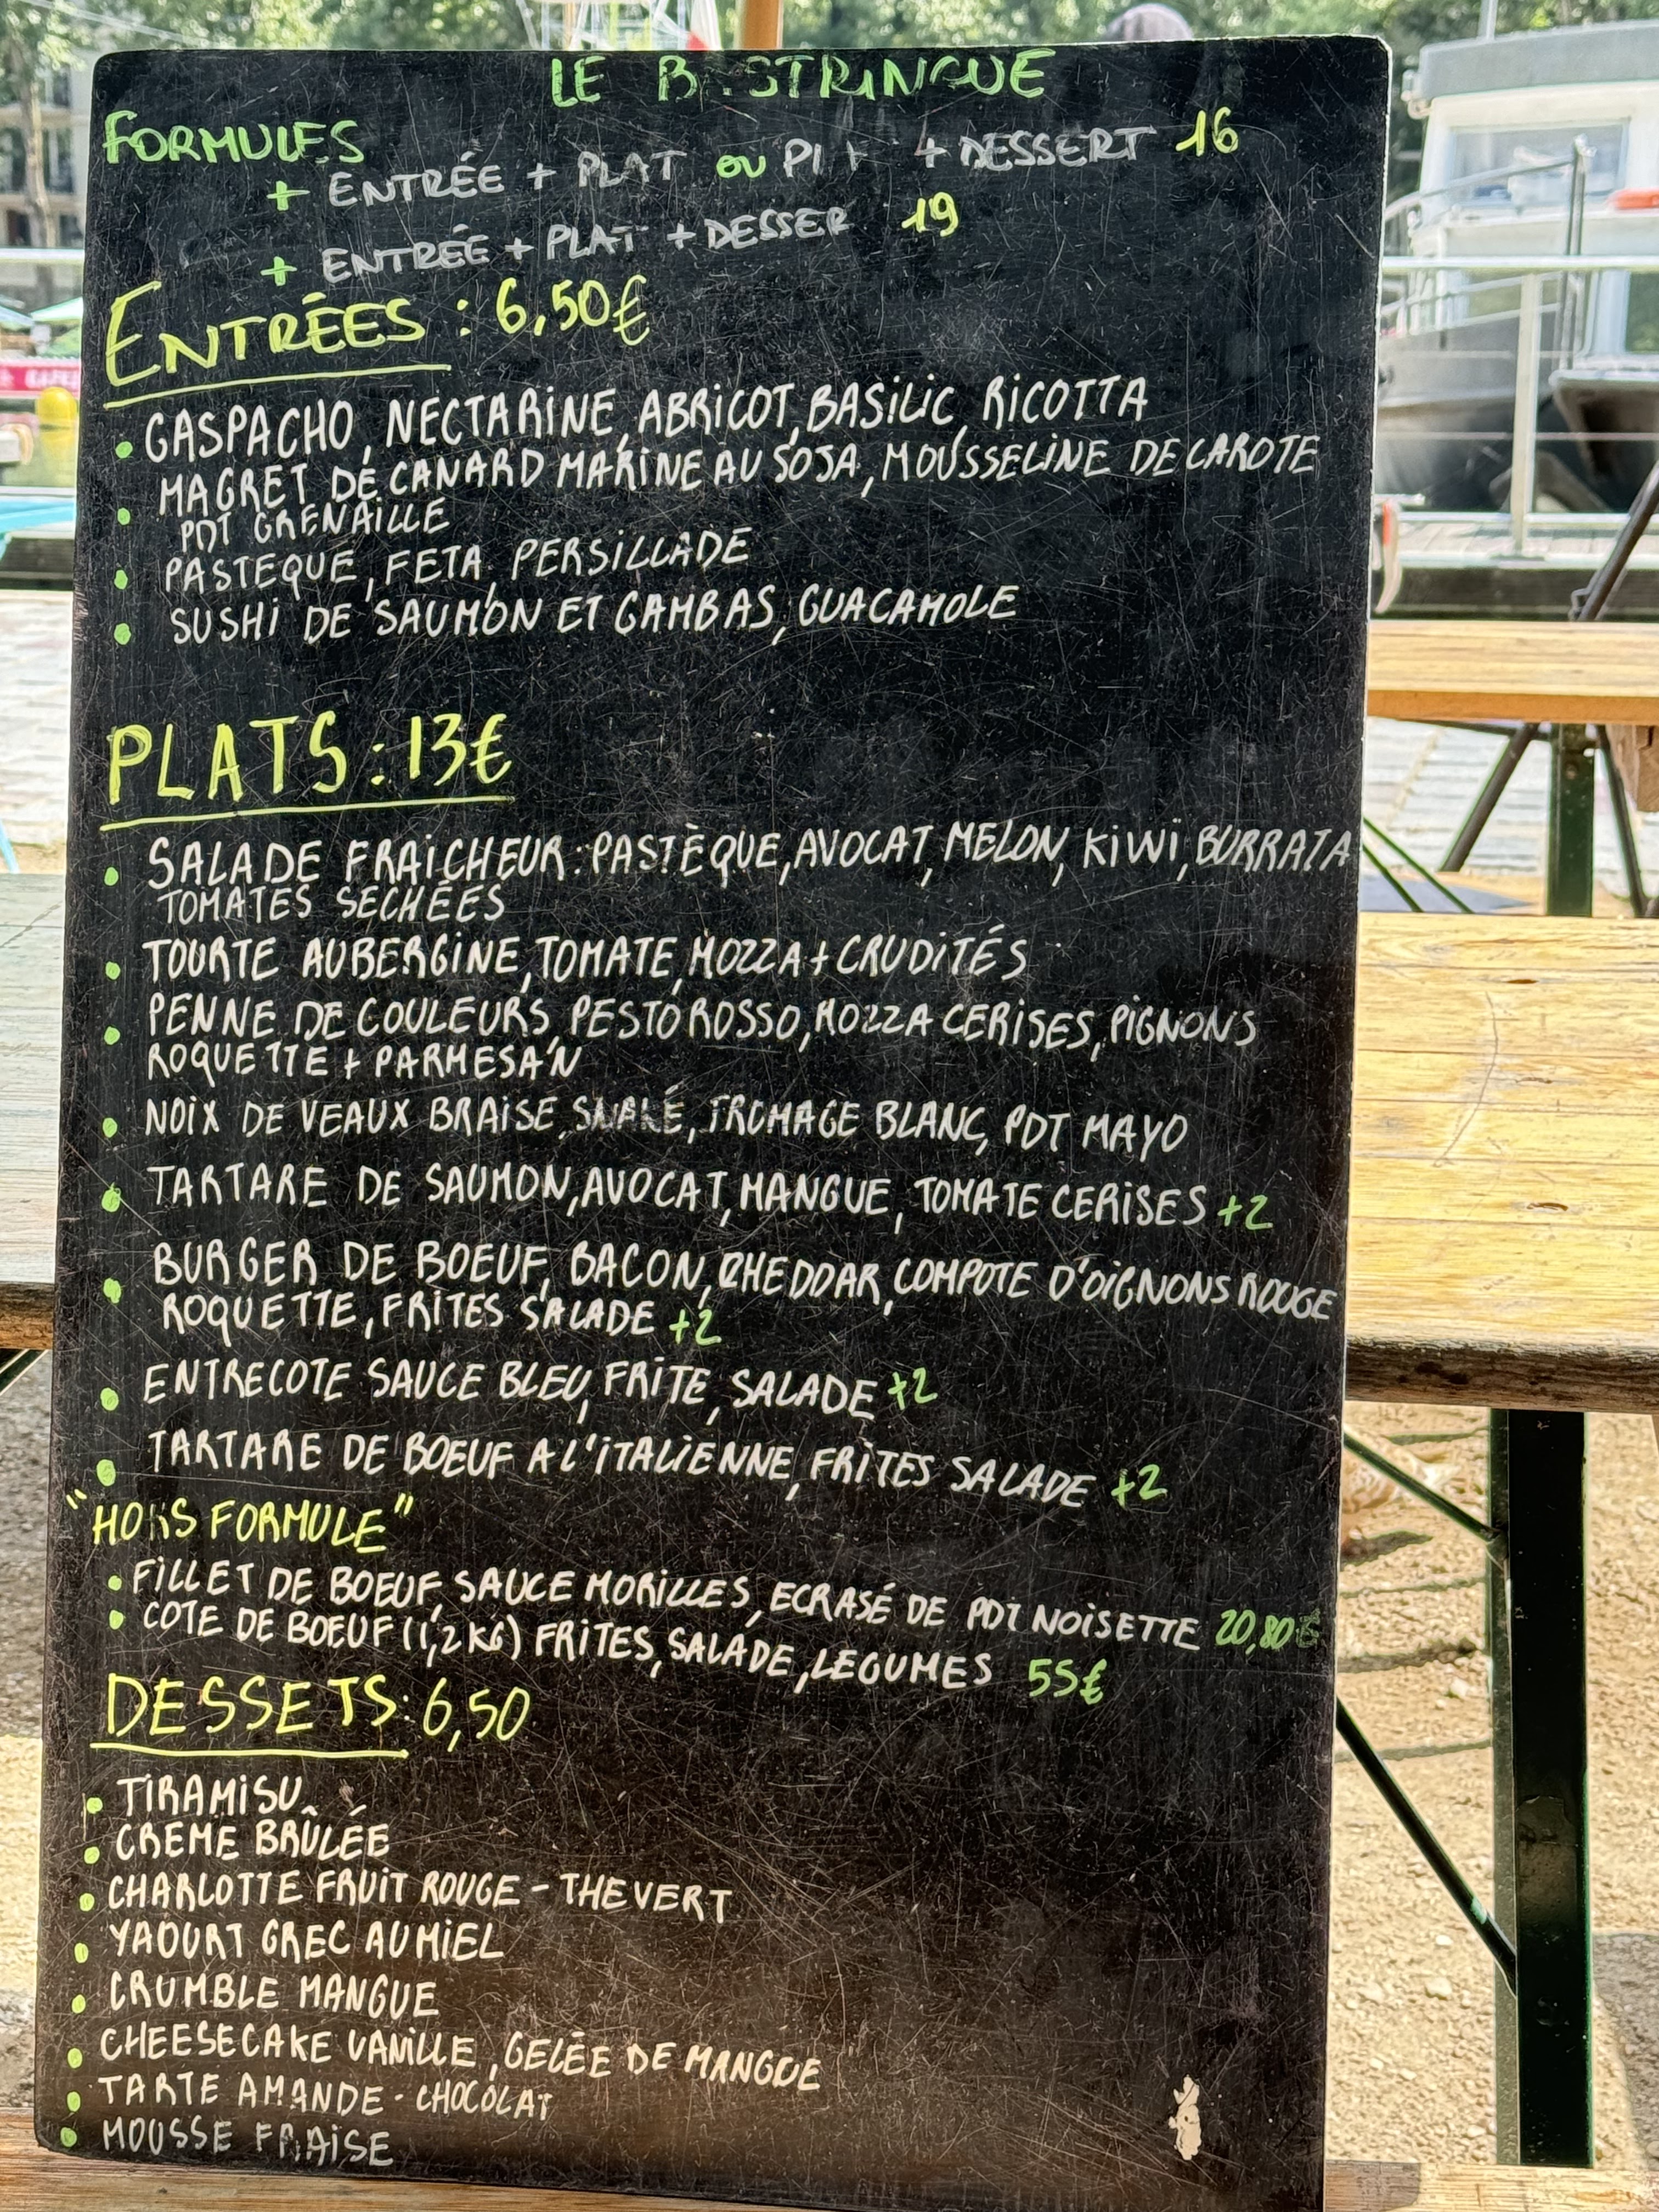 LE BASTRINGUE
FORMULES
+ ENTRÉE + PLAT OU PLAT + DESSERT 16
+ ENTRÉE + PLAT + DESSER 19
ENTRÉES : 6,50€
• GASPACHO, NECTARINE, ABRICOT, BASILIC, RICOTTA
• MAGRET DE CANARD MARINE AU SOJA, MOUSSELINE DE CAROTE
PDT GRENAILLE
• PASTEQUE, FETA, PERSILLADE
• SUSHI DE SAUMON ET GAMBAS, GUACAMOLE
PLATS : 13€
• SALADE FRAICHEUR : PASTÈQUE, AVOCAT, MELON, KIWI, BURRATA
TOMATES SECHÉES
• TOURTE AUBERGINE, TOMATE, MOZZA + CRUDITÉS
• PENNE DE COULEURS, PESTO ROSSO, MOZZA CERISES, PIGNONS
ROQUETTE + PARMESAN
• NOIX DE VEAUX BRAISE, FROMAGE BLANC, PDT MAYO
• TARTARE DE SAUMON, AVOCAT, MANGUE, TOMATE CERISES +2
• BURGER DE BOEUF, BACON, CHEDDAR, COMPOTE D'OIGNONS ROUGE
ROQUETTE, FRITES SALADE +2
• ENTRECOTE SAUCE BLEU, FRITE, SALADE +2
• TARTARE DE BOEUF A L'ITALIENNE, FRITES SALADE +2
"HORS FORMULE"
• FILLET DE BOEUF, SAUCE MORILLES, ECRASÉ DE PDT NOISETTE 20,80€
• COTE DE BOEUF (1,2KG) FRITES, SALADE, LEGUMES 55€
DESSETS : 6,50
• TIRAMISU
• CREME BRÛLÉE
• CHARLOTTE FRUIT ROUGE - THE VERT
• YAOURT GREC AU MIEL
• CRUMBLE MANGUE
• CHEESECAKE VANILLE, GELÉE DE MANGUE
• TARTE AMANDE - CHOCOLAT
• MOUSSE FRAISE